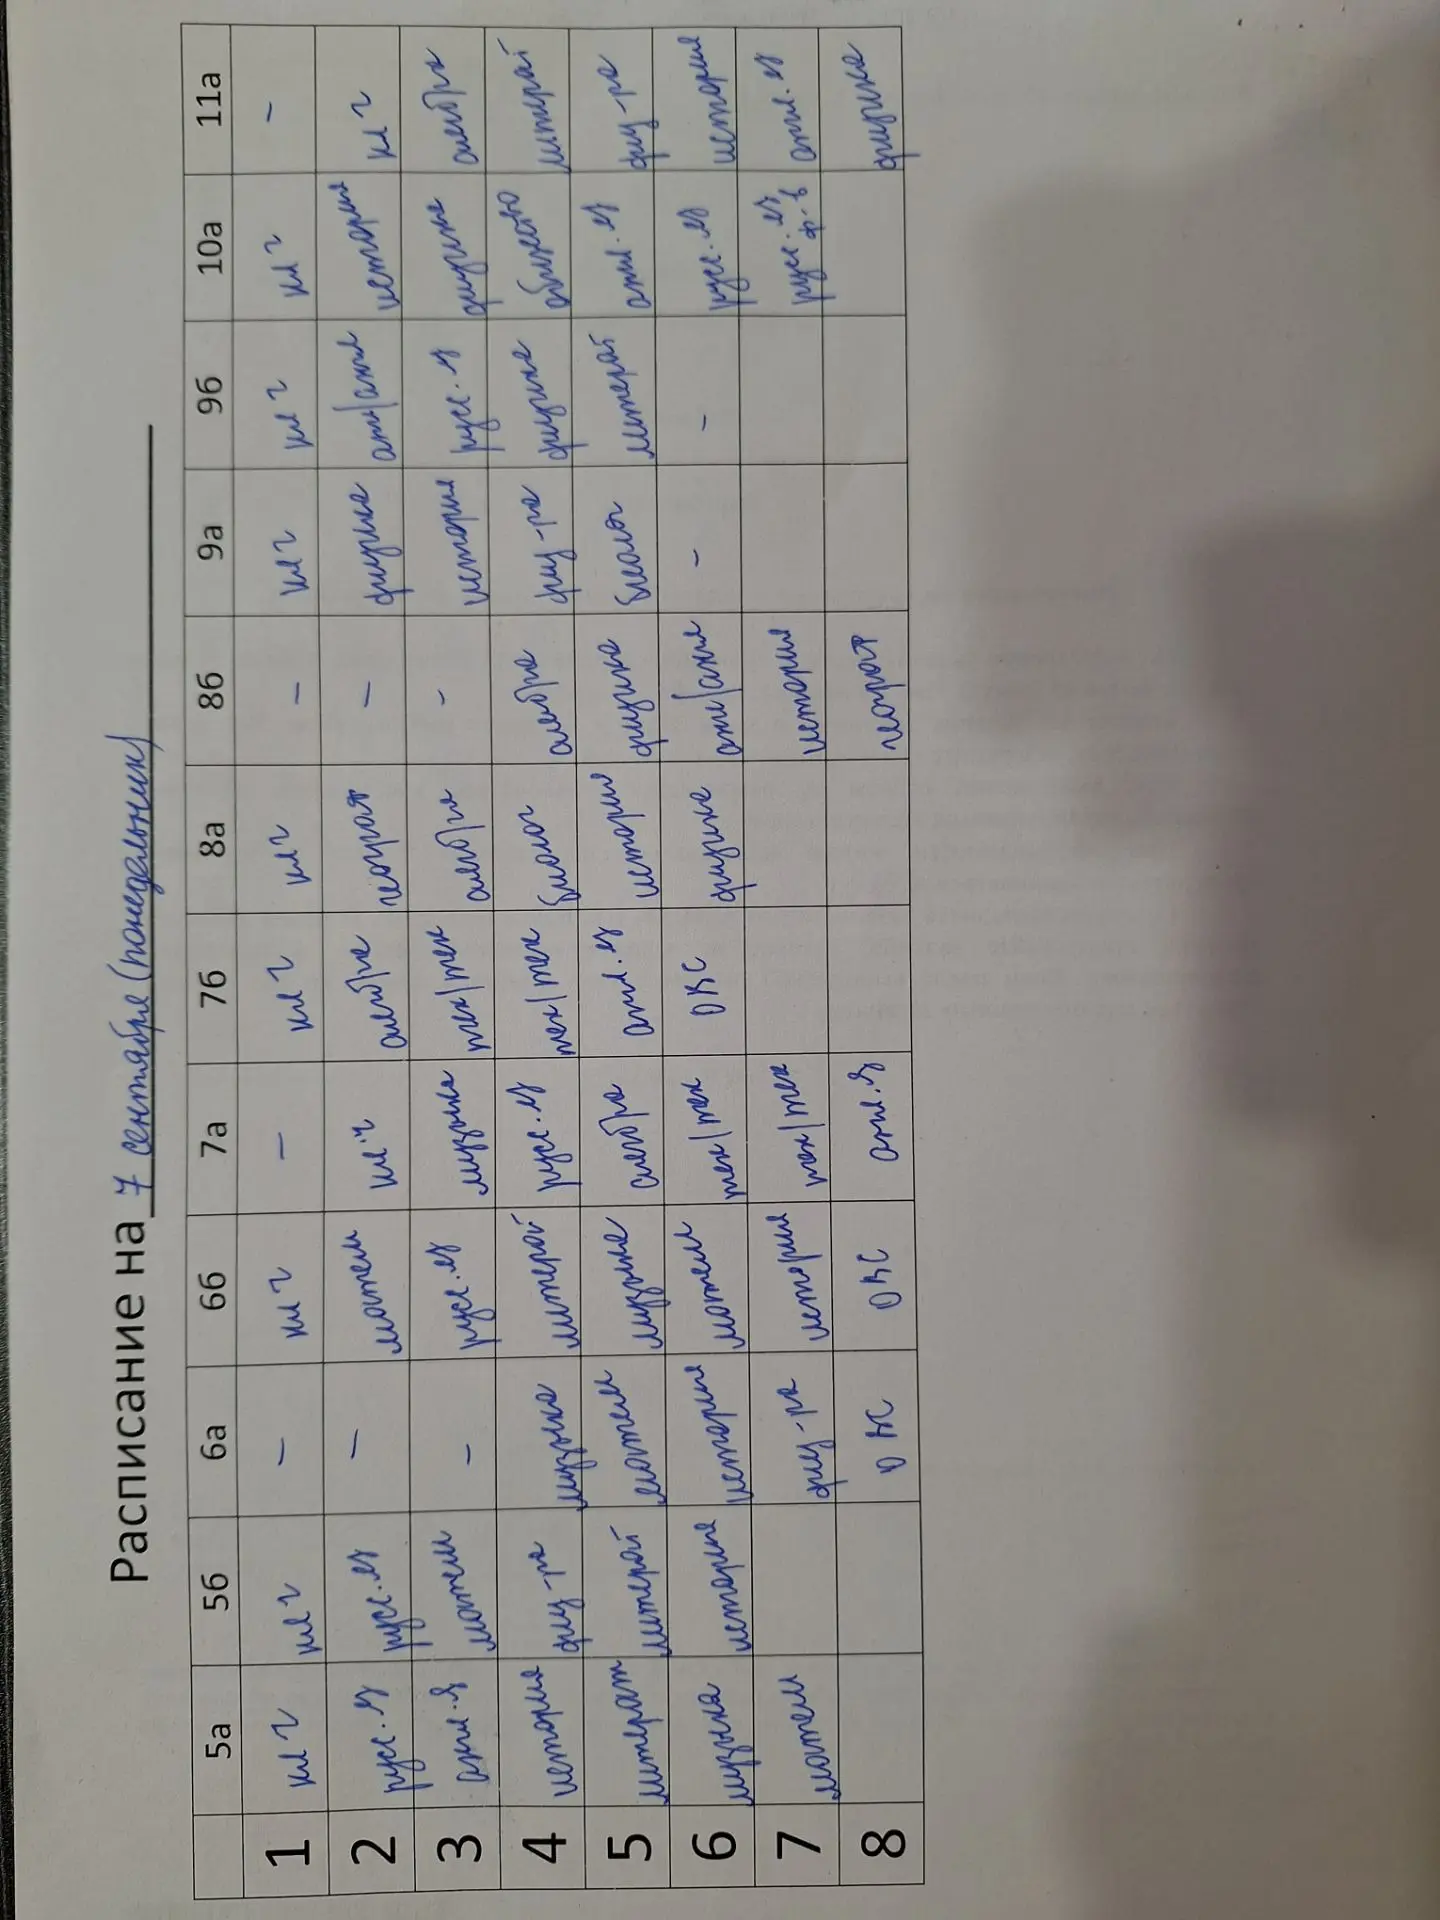 Расписание на 7 сентября (понедельник)
5а 5б 6а 6б 7а 7б 8а 8б 9а 9б 10а 11а
1 кл ч кл ч - кл ч - кл ч кл ч - кл ч кл ч кл ч -
2 русс. яз русс. яз - матем кл. ч алгебра геогрaф - физика анг/англ история кл ч
3 англ. яз матем - русс. яз музыка тех/тех алгебра - история русс. яз физика алгебра
4 история физ-ра музыка литерат русс. яз тех/тех биолог алгебра физ-ра физика общество литерат
5 литерат литерат матем музыка алгебра англ. яз история физика биолог литерат англ. яз физ-ра
6 музыка история история матем тех/тех ОВС физика анг/англ - - русс. яз история
7 матем физ-ра история тех/тех история русс. яз ф-в англ. яз
8 ОВС ОВС англ. яз географ физика